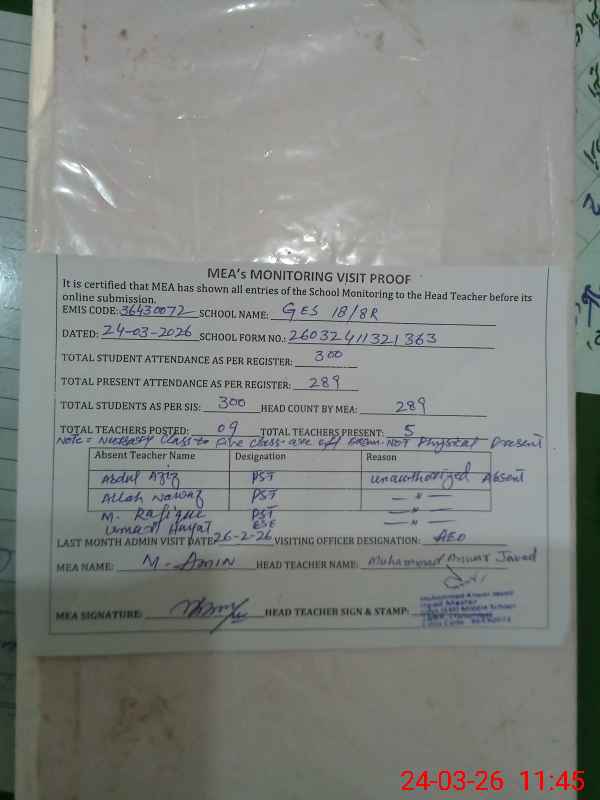 MEA's MONITORING VISIT PROOF
It is certified that MEA has shown all entries of the School Monitoring to the Head Teacher before its
online submission.
EMIS CODE: 36430072 SCHOOL NAME: GES 18/8R
DATED: 24-03-2026 SCHOOL FORM NO.: 26032411321363
TOTAL STUDENT ATTENDANCE AS PER REGISTER: 300
TOTAL PRESENT ATTENDANCE AS PER REGISTER: 289
TOTAL STUDENTS AS PER SIS: 300 HEAD COUNT BY MEA: 289
TOTAL TEACHERS POSTED: 09 TOTAL TEACHERS PRESENT: 5
Note = Class to five class are off NOT Physical Present
Absent Teacher Name Designation Reason
Abdul Aziz PST unauthorized Absent
Allah Nawaz PST — " —
M. Rafique PST — " —
Umar Hayat ESE — " —
LAST MONTH ADMIN VISIT DATE 26-2-26 VISITING OFFICER DESIGNATION: AEO
MEA NAME: M. AMIN HEAD TEACHER NAME: Muhammad Anwar Javed
MEA SIGNATURE: HEAD TEACHER SIGN & STAMP:
Muhammad Anwar Javed
Head Master
24-03-26 11:45